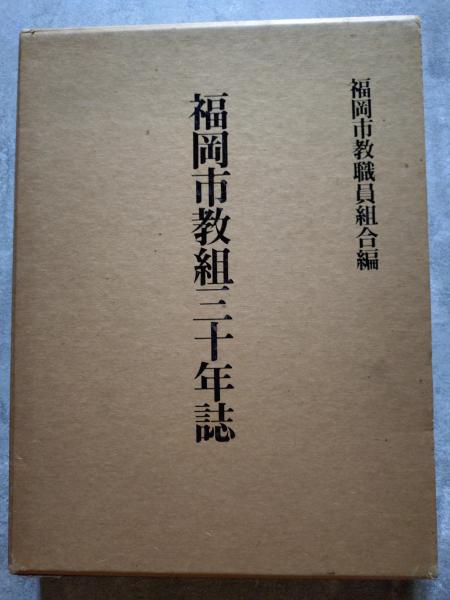 福岡市教職員組合編
福岡市教組三十年誌